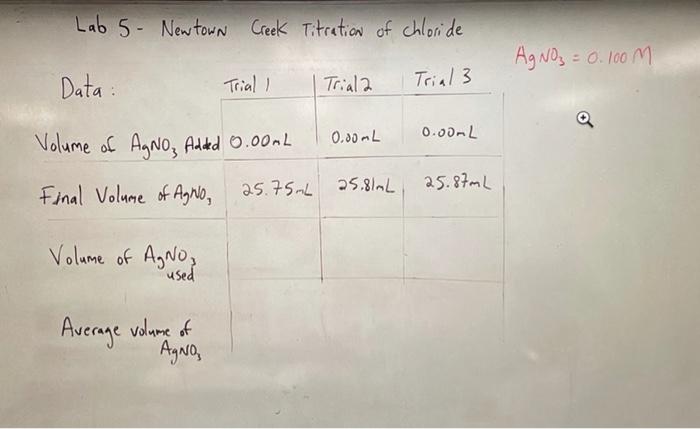 Lab 5 - Newtown Creek Titration of chloride
AgNO₃ = 0.100 M
Data: Trial 1 Trial 2 Trial 3
Volume of AgNO₃ Added 0.00mL 0.00mL 0.00mL
Final Volume of AgNO₃ 25.75mL 25.81mL 25.87mL
Volume of AgNO₃
used
Average volume of
AgNO₃